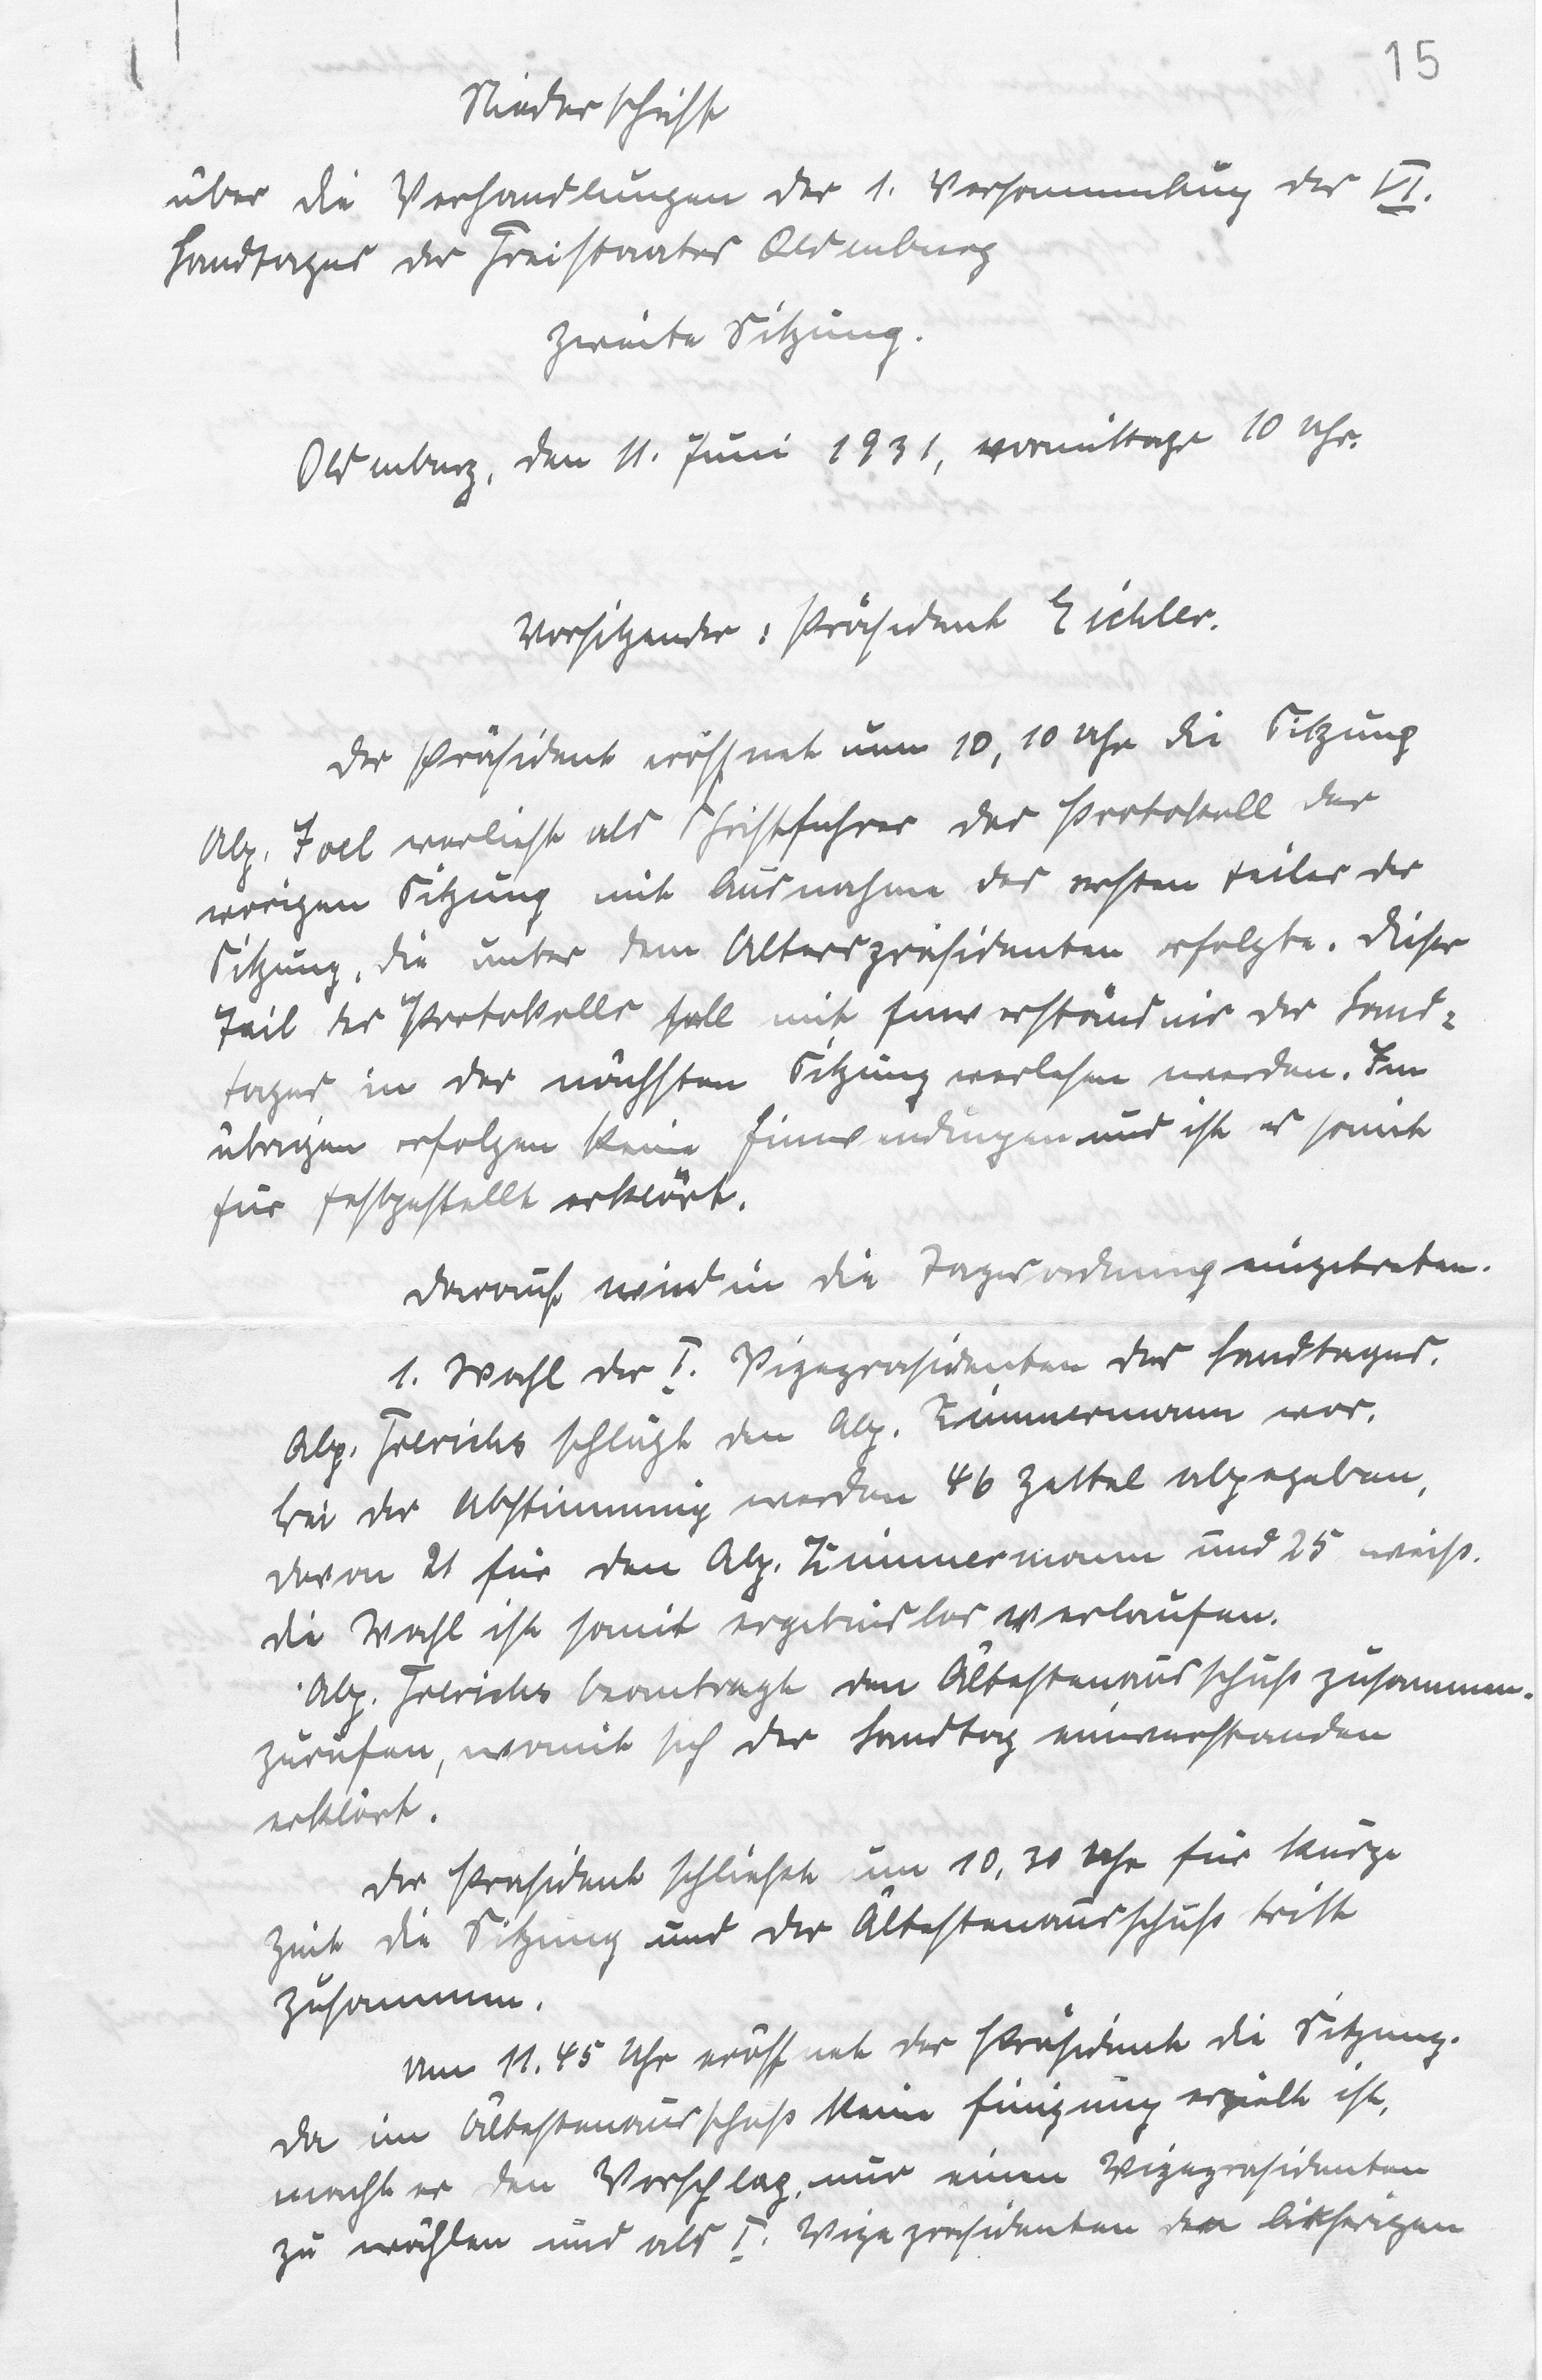 15
Niederschrift
über die Verhandlungen der 1. Versammlung des VI.
Landtages des Freistaates Oldenburg
Zweite Sitzung.
Oldenburg, den 11. Juni 1931, vormittags 10 Uhr.
Vorsitzender: Präsident Eichler.
Der Präsident eröffnet um 10,10 Uhr die Sitzung
Abg. Joel verliest als Schriftführer das Protokoll der
vorigen Sitzung mit Ausnahme des ersten Teiles der
Sitzung, die unter dem Alterspräsidenten erfolgte. Dieser
Teil des Protokolls soll mit Einverständnis des Land-
tages in der nächsten Sitzung verlesen werden. Im
übrigen erfolgen keine Einwendungen und ist es somit
für festgestellt erklärt.
Darauf wird in die Tagesordnung eingetreten.
1. Wahl des I. Vizepräsidenten des Landtages.
Abg. Frerichs schlägt den Abg. Zimmermann vor.
Bei der Abstimmung werden 46 Zettel abgegeben,
davon 21 für den Abg. Zimmermann und 25 weiß.
Die Wahl ist somit ergebnislos verlaufen.
Abg. Frerichs beantragt den Ältestenausschuß zusammen-
zurufen, womit sich der Landtag einverstanden
erklärt.
Der Präsident schließt um 10,30 Uhr für kurze
Zeit die Sitzung und der Ältestenausschuß tritt
zusammen.
Um 11.45 Uhr eröffnet der Präsident die Sitzung.
Da im Ältestenausschuß keine Einigung erzielt ist,
macht er den Vorschlag, nur einen Vizepräsidenten
zu wählen und als I. Vizepräsidenten den bisherigen